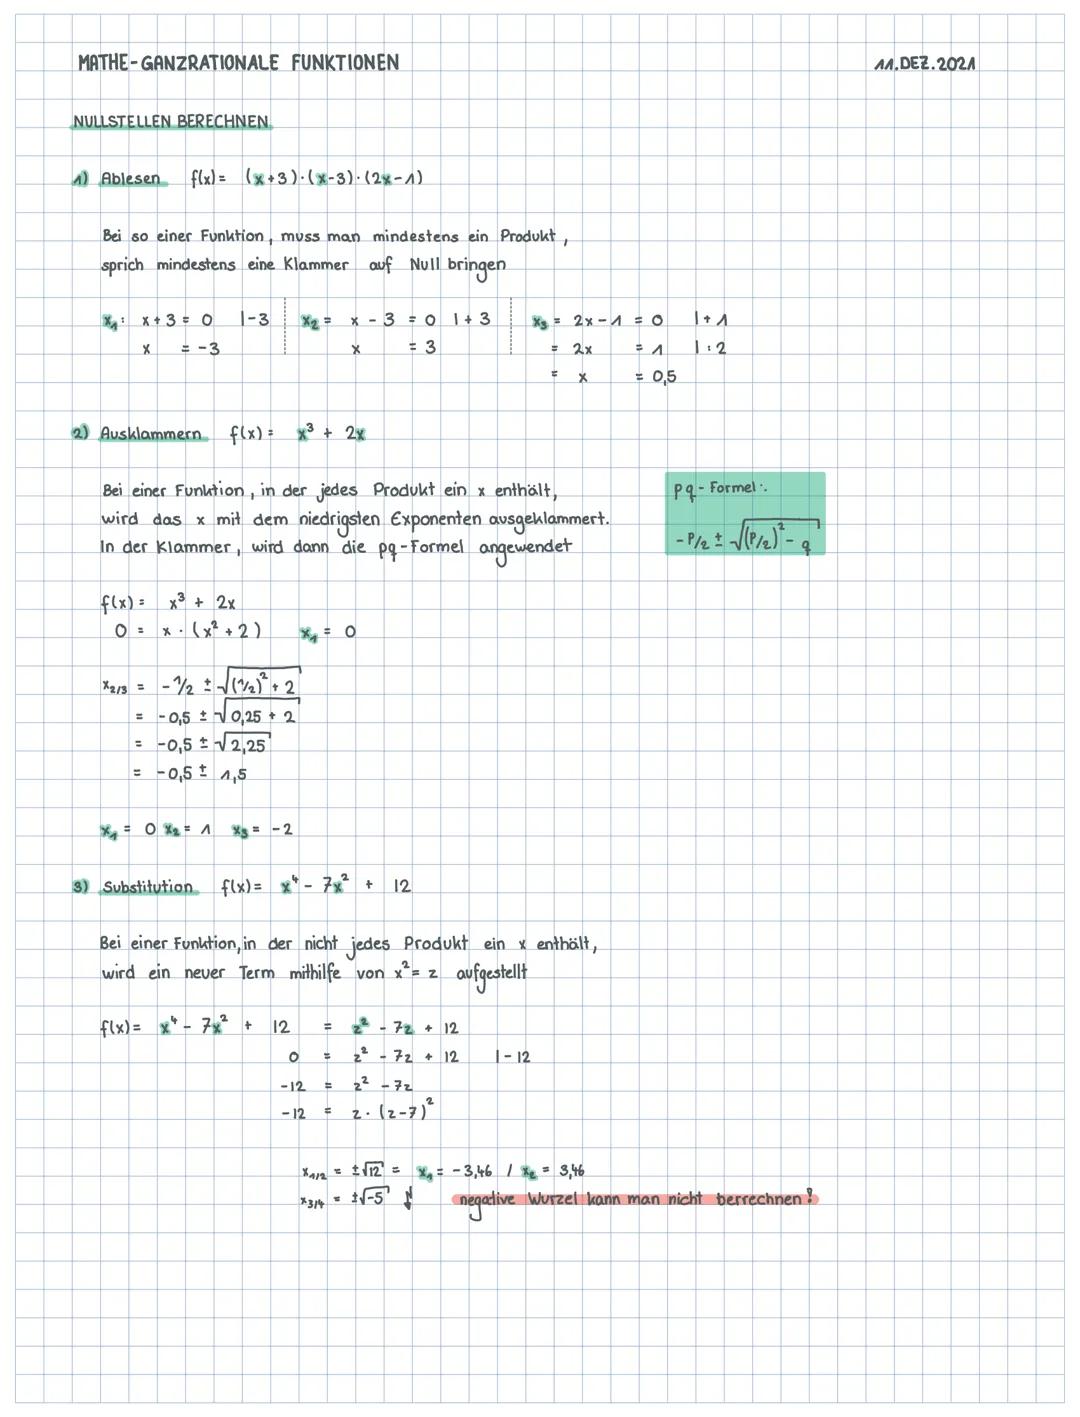 MATHE-GANZRATIONALE FUNKTIONEN 11.DEZ.2021
NULLSTELLEN BERECHNEN
1) Ablesen f(x) = (x+3)·(x-3)·(2x-1)
Bei so einer Funktion, muss man mindestens ein Produkt,
sprich mindestens eine Klammer auf Null bringen
x₁: x + 3 = 0 |-3 x₂ = x - 3 = 0 |+3 x₃ = 2x - 1 = 0 |+1
x = -3 x = 3 = 2x = 1 |:2
= x = 0,5
2) Ausklammern f(x) = x³ + 2x
Bei einer Funktion, in der jedes Produkt ein x enthält,
wird das x mit dem niedrigsten Exponenten ausgeklammert.
In der Klammer, wird dann die pq-Formel angewendet
pq-Formel:
-P/2 ± √(P/2)² - q
f(x) = x³ + 2x
0 = x · (x² + 2) x₁ = 0
x₂/₃ = -1/2 ± √(1/2)² + 2
= -0,5 ± √0,25 + 2
= -0,5 ± √2,25
= -0,5 ± 1,5
x₁ = 0 x₂ = 1 x₃ = -2
3) Substitution f(x) = x⁴ - 7x² + 12
Bei einer Funktion, in der nicht jedes Produkt ein x enthält,
wird ein neuer Term mithilfe von x² = z aufgestellt
f(x) = x⁴ - 7x² + 12 = z² - 7z + 12
0 = z² - 7z + 12 |-12
-12 = z² - 7z
-12 = z · (z-7)²
x₁/₂ = ±√12 = x₁ = -3,46 / x₂ = 3,46
x₃/₄ = ±√-5 negative Wurzel kann man nicht berrechnen!